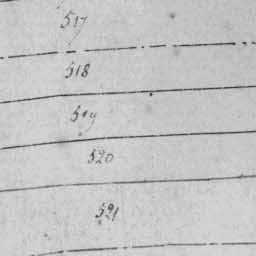 517
518
519
520
521